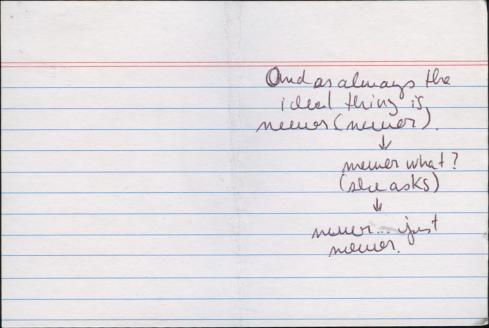 And as always the
ideal thing is,
never (never).
↓
never what?
(she asks)
↓
never... just
never.